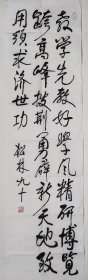 教学先教好学风精研博览
跨高峰披荆勇辟新天地致
用频求济世功 松林九十